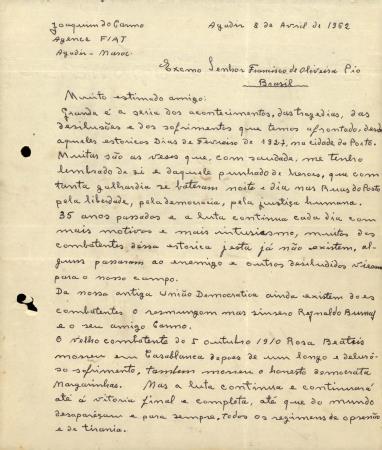 Joaquim do Carmo
Agence FIAT
Agadir - Maroc.
Agadir 8 de Avril de 1962
Exemo Senhor Francisco de Oliveira Pio
Brasil
Muito estimado amigo:
Grande é a serie dos acontecimentos, das tragedias, das
desilusões e dos sofrimentos que temos afrontado, desde
aqueles estoricos Dias de Fevreiro de 1927, na cidade do Porto.
Muitas são as veses que, com saudade, me tenho
lembrado de si e daquele punhado de heroes, que com
tanta galhardia se bateram noite e dia nas Ruas do Porto
pela libredade, pela democracia, pela justiça humana.
35 anos passados e a luta continua cada dia com
mais motivos e mais intusiasmo, muitos dos
combatentes dessa estorica jesta já não existem, al-
guns passaram ao enemigo e outros desiludidos viraram
para o nosso campo.
Da nossa antiga União Democratica ainda existem dois
combatentes o resmungam mas sinsero Reynaldo
e o seu amigo Carmo.
O velho combatente do 5 outubro 1910 Rosa Beateis
morreu em Casablanca depois de um longo e deloro-
so sofrimento, tambem morreu o honesto democrata
Margarinhas. Mas a luta continua e continuará
até á vitoria final e completa, até que do mundo
desapareçam e para sempre, todos os regimens de opressão
e de tirania.